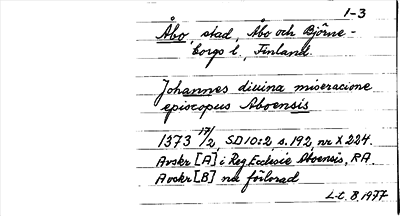 1-3
Åbo, stad, Åbo och Björne-
borgs l., Finland.
Johannes divina miseracione
episcopus Aboensis
1373 17/2, SD 10:2, s. 192, nr X 224.
Avskr [A] i Reg. Ecclesie Aboensis, RA
Avskr [B] nu förlorad
L-t. 8. 1977